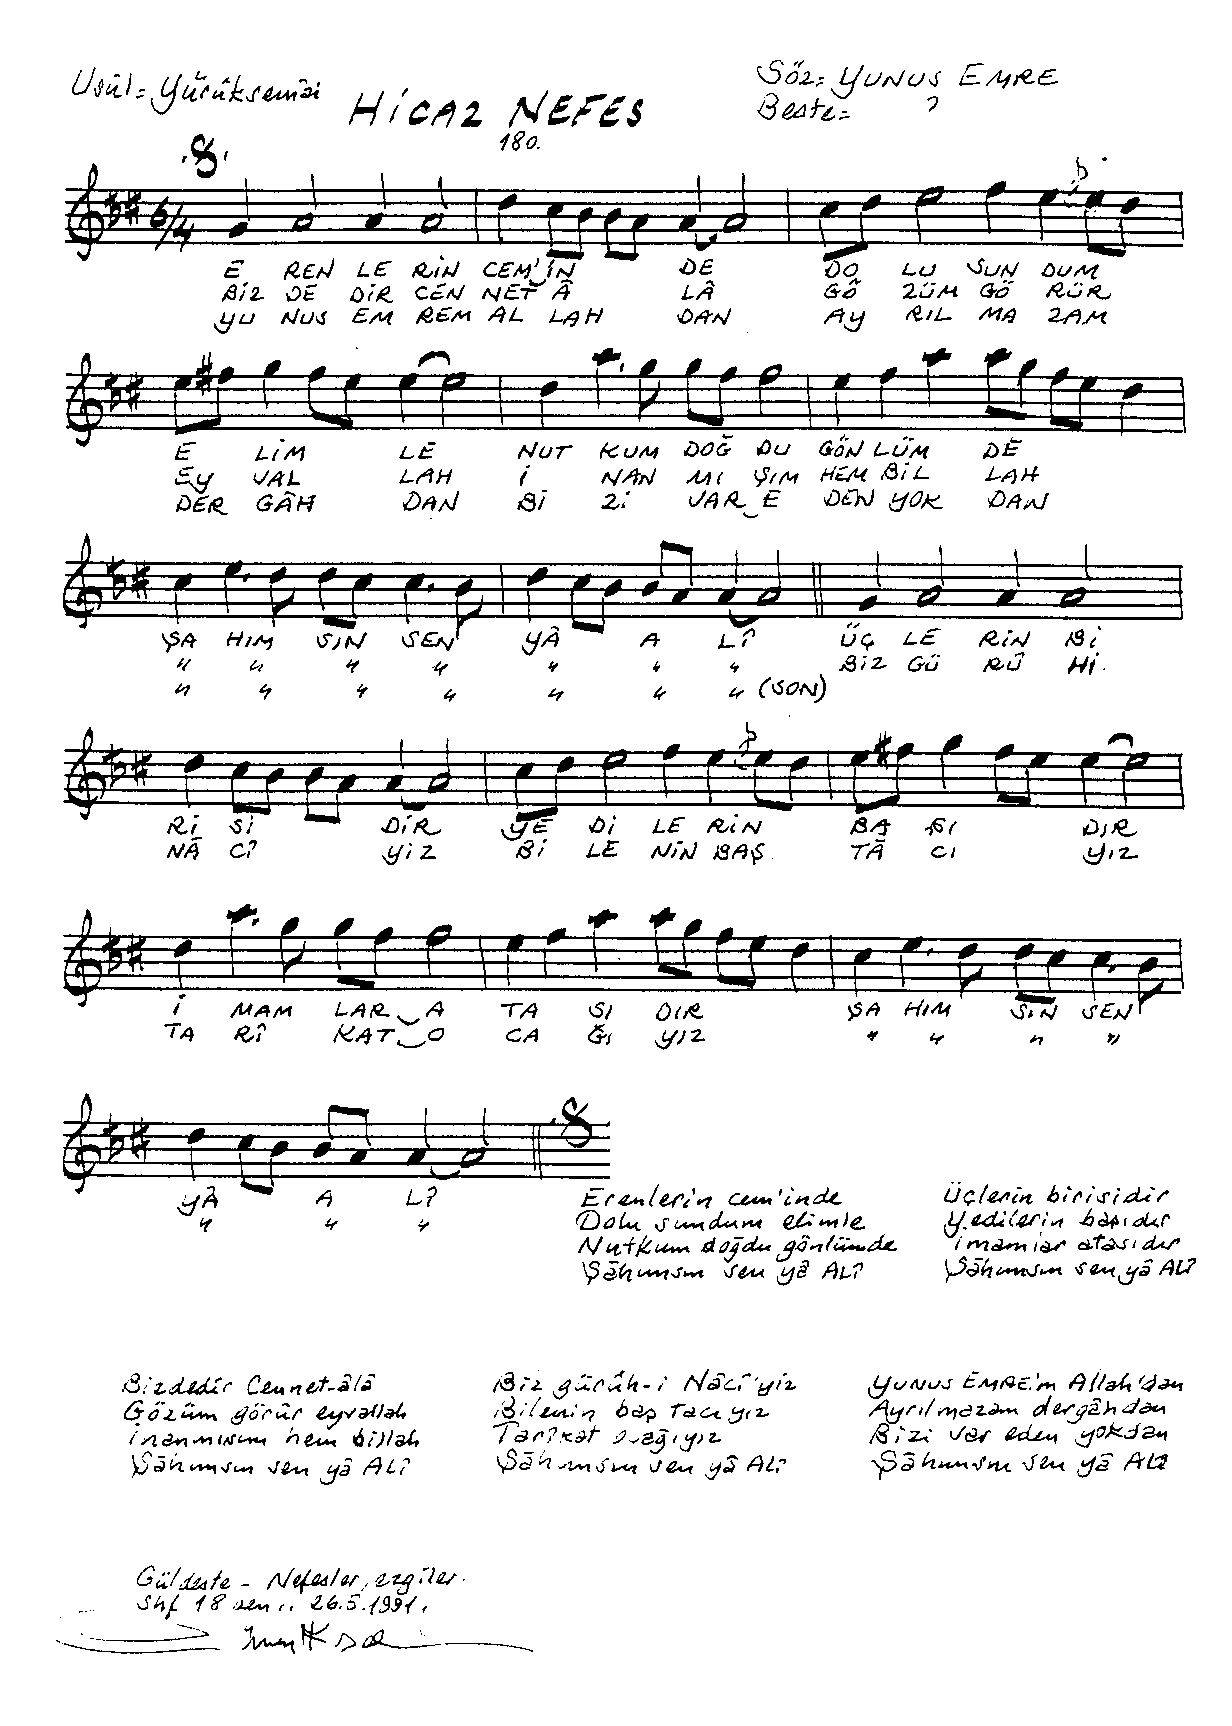 Usûl = Yürüksemâi
Söz = YUNUS EMRE
HİCAZ NEFES
Beste = ?
180.
6/4
E REN LE RİN CEM' İN DE DO LU SUN DUM
BİZ DE DİR CEN NET Â LÂ GÖ ZÜM GÖ RÜR
YU NUS EM REM AL LAH DAN AY RIL MA ZAM
E LİM LE NUT KUM DOĞ DU GÖN LÜM DE
EY VAL LAH İ NAN MI ŞIM HEM BİL LAH
DER GÂH DAN Bİ Zİ VAR E DEN YOK DAN
ŞA HIM SIN SEN YÂ A LÎ ÜÇ LE RİN Bİ
" " " " " " " BİZ GÜ RÛ Hİ
" " " " " " " (SON)
Rİ Sİ DİR YE Dİ LE RİN BA ŞI DIR
NÂ CÎ YİZ Bİ LE NİN BAŞ TÂ CI YIZ
İ MAM LAR A TA SI DIR ŞA HIM SIN SEN
TA RÎ KAT O CA ĞI YIZ " " " "
YÂ A LÎ
" " "
Erenlerin cem'inde
Dolu sundum elimle
Nutkum doğdu gönlümde
Şâhımsın sen yâ ALÎ
Üçlerin birisidir
Yedilerin başıdır
İmamlar atasıdır
Şâhımsın sen yâ ALÎ
Bizdedir Cennet-âlâ
Gözüm görür eyvallah
İnanmışım hem billah
Şâhımsın sen yâ ALÎ
Biz gürûh-i Nâcî'yiz
Bilenin baş tacıyız
Tarîkat ocağıyız
Şâhımsın sen yâ ALÎ
YUNUS EMRE'm Allah'dan
Ayrılmazam dergâhdan
Bizi var eden yokdan
Şâhımsın sen yâ ALÎ
Güldeste - Nefesler, ezgiler.
Shf 18 26.5.1991.